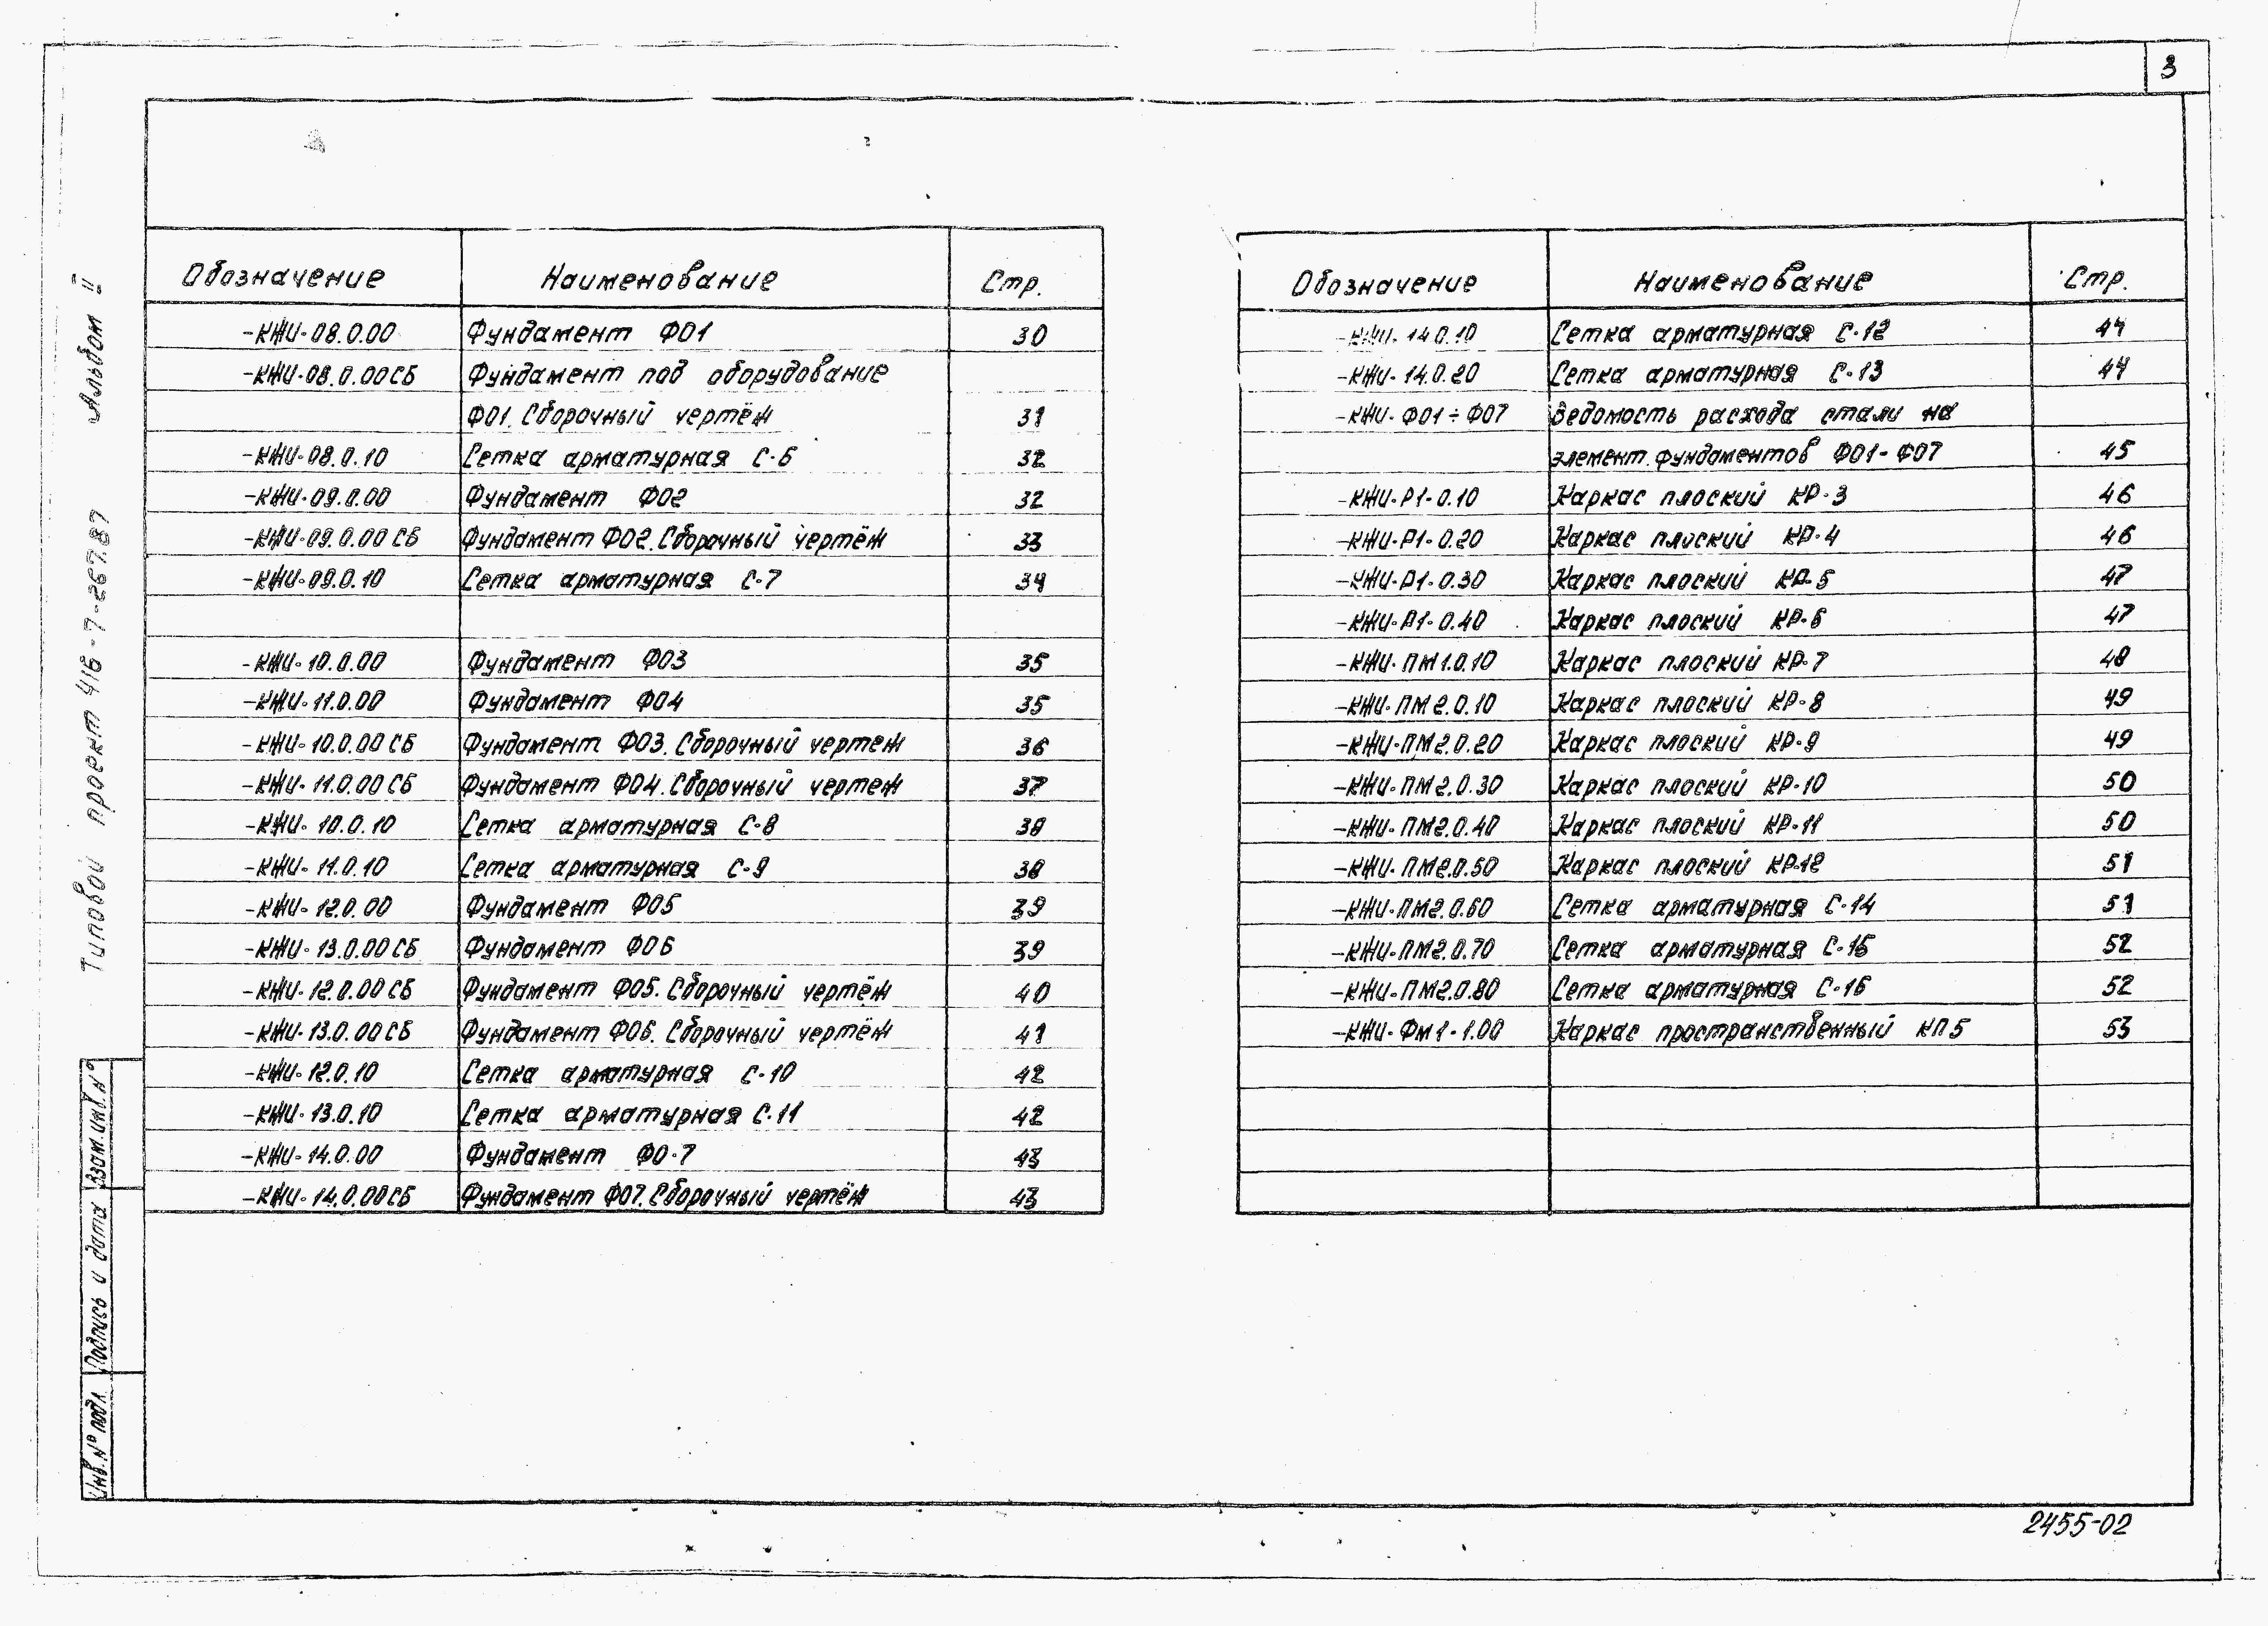 3
Типовой проект 416-7-267.87 Альбом II
Обозначение Наименование Стр.
-КЖИ-08.0.00 Фундамент Ф01 30
-КЖИ-08.0.00СБ Фундамент под оборудование
Ф01. Сборочный чертёж 31
-КЖИ-08.0.10 Сетка арматурная С-6 32
-КЖИ-09.0.00 Фундамент Ф02 32
-КЖИ-09.0.00 СБ Фундамент Ф02. Сборочный чертёж 33
-КЖИ-09.0.10 Сетка арматурная С-7 34
-КЖИ-10.0.00 Фундамент Ф03 35
-КЖИ-11.0.00 Фундамент Ф04 35
-КЖИ-10.0.00 СБ Фундамент Ф03. Сборочный чертеж 36
-КЖИ-11.0.00 СБ Фундамент Ф04. Сборочный чертеж 37
-КЖИ-10.0.10 Сетка арматурная С-8 38
-КЖИ-11.0.10 Сетка арматурная С-9 38
-КЖИ-12.0.00 Фундамент Ф05 39
-КЖИ-13.0.00 СБ Фундамент Ф06 39
-КЖИ-12.0.00 СБ Фундамент Ф05. Сборочный чертёж 40
-КЖИ-13.0.00 СБ Фундамент Ф06. Сборочный чертёж 41
-КЖИ-12.0.10 Сетка арматурная С-10 42
-КЖИ-13.0.10 Сетка арматурная С-11 42
-КЖИ-14.0.00 Фундамент Ф0-7 43
-КЖИ-14.0.00СБ Фундамент Ф07. Сборочный чертёж 43
Обозначение Наименование Стр.
-КЖИ-14.0.10 Сетка арматурная С-12 44
-КЖИ-14.0.20 Сетка арматурная С-13 44
-КЖИ-Ф01÷Ф07 Ведомость расхода стали на
элемент. фундаментов Ф01-Ф07 45
-КЖИ-Р1-0.10 Каркас плоский КР-3 46
-КЖИ-Р1-0.20 Каркас плоский КР-4 46
-КЖИ-Р1-0.30 Каркас плоский КР-5 47
-КЖИ-Р1-0.40 Каркас плоский КР-6 47
-КЖИ-ПМ1.0.10 Каркас плоский КР-7 48
-КЖИ-ПМ2.0.10 Каркас плоский КР-8 49
-КЖИ-ПМ2.0.20 Каркас плоский КР-9 49
-КЖИ-ПМ2.0.30 Каркас плоский КР-10 50
-КЖИ-ПМ2.0.40 Каркас плоский КР-11 50
-КЖИ-ПМ2.0.50 Каркас плоский КР-12 51
-КЖИ-ПМ2.0.60 Сетка арматурная С-14 51
-КЖИ-ПМ2.0.70 Сетка арматурная С-15 52
-КЖИ-ПМ2.0.80 Сетка арматурная С-16 52
-КЖИ-ФМ1-1.00 Каркас пространственный КП5 53
Инв.N° подл. Подпись и дата Взам.инв.N°
2455-02